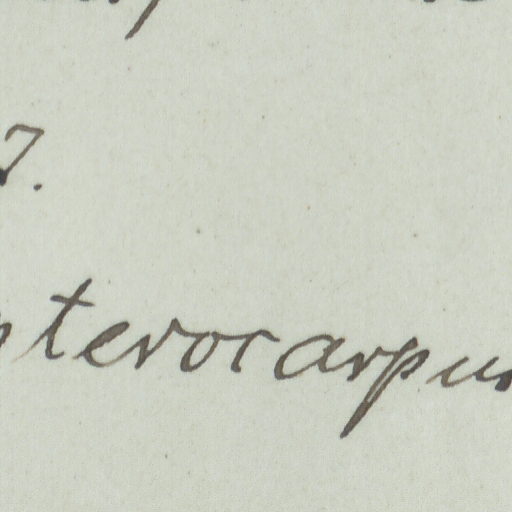 7.
pterocarpus